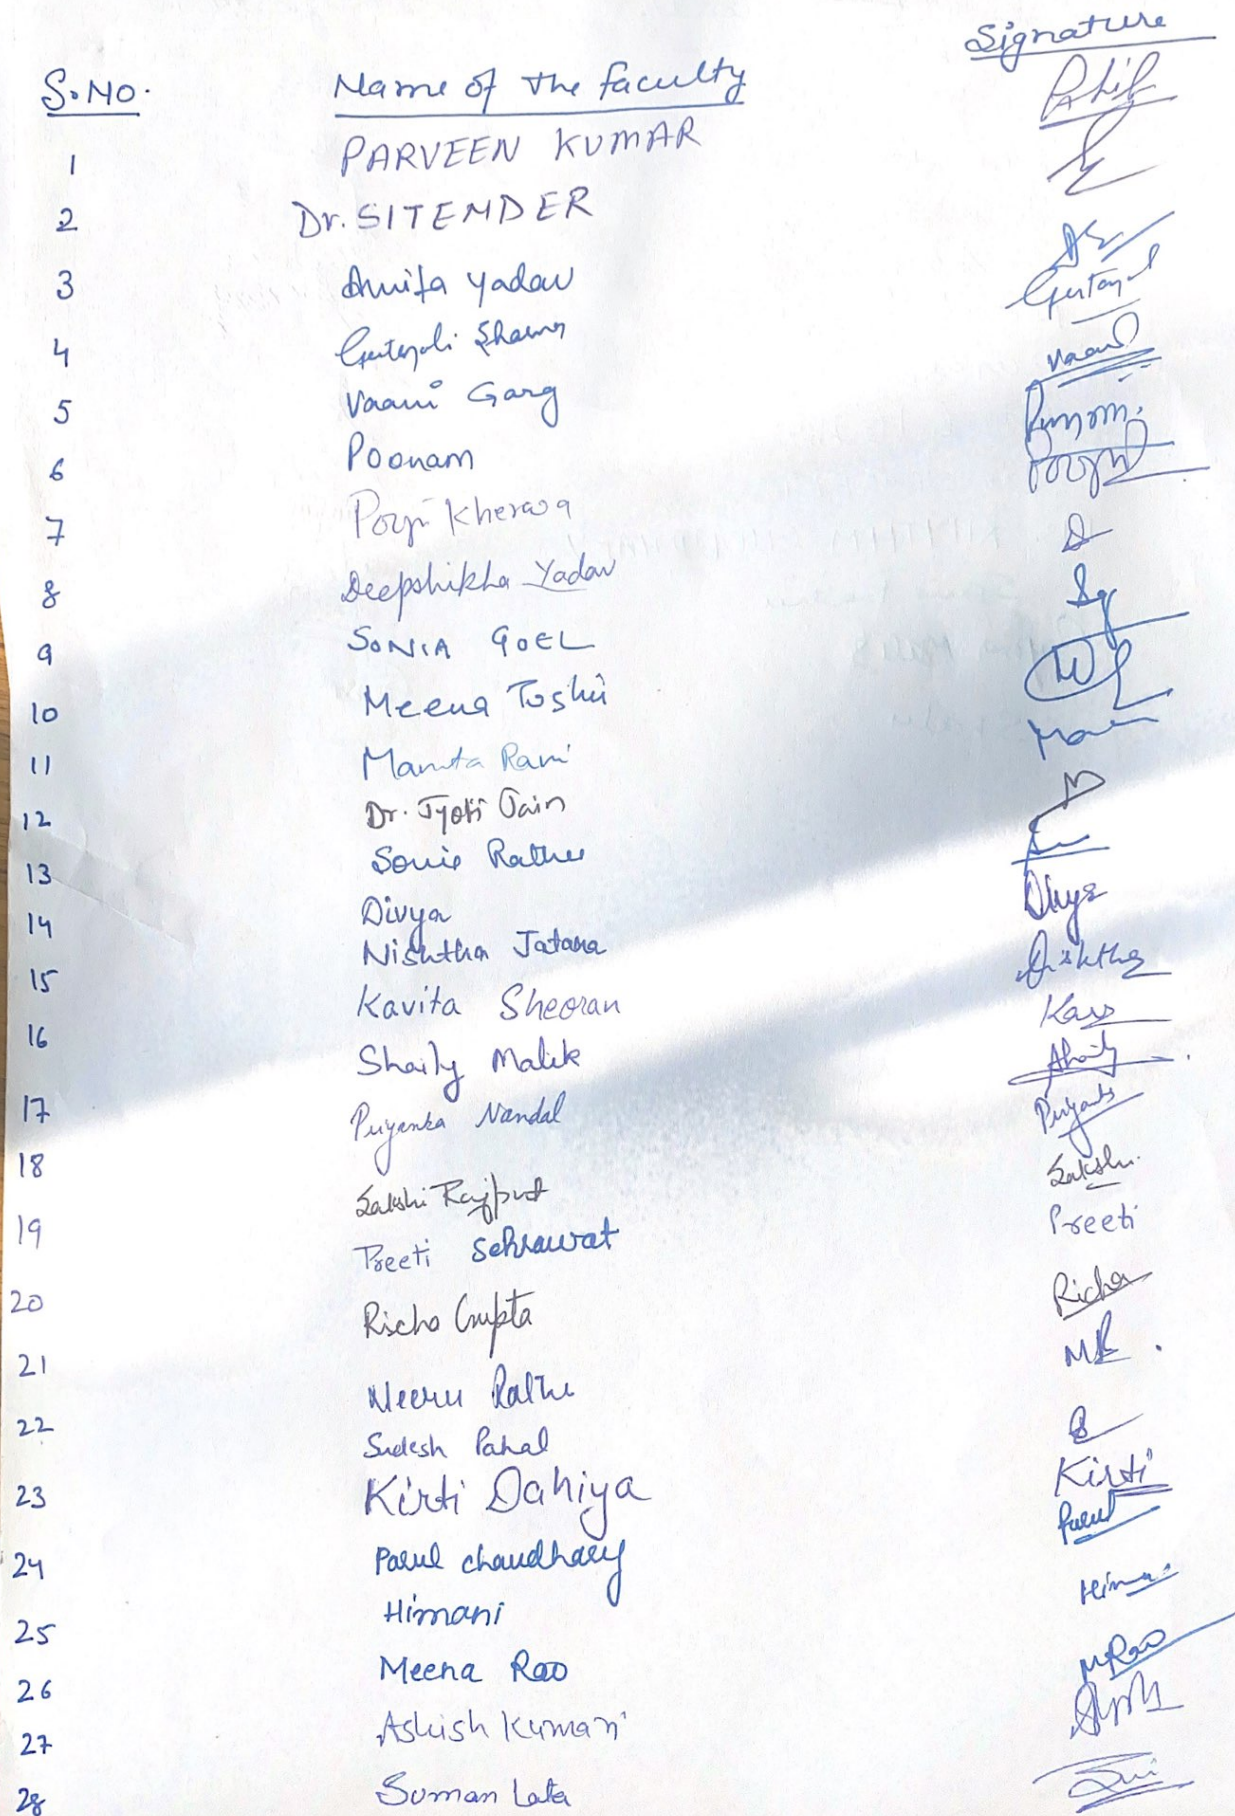 S.NO. Name of the faculty Signature
1 PARVEEN KUMAR
2 Dr. SITENDER
3 Anita Yadav
4 Geetanjali Sharma
5 Vaani Garg Vaani
6 Poonam Poonam
7 Pooja Kherwa Pooja
8 Deepshikha Yadav
9 SONIA GOEL
10 Meena Toshir
11 Mamta Rani
12 Dr. Jyoti Jain
13 Sonia Rathee
14 Divya Divya
15 Nishtha Jatana Nishtha
16 Kavita Sheoran Kavs
17 Shaily Malik Shaily
18 Priyanka Nandal Priyanka
19 Sakshi Rajput Sakshi
20 Preeti Sehrawat Preeti
21 Richa Gupta Richa
22 Neeru Rathee NR.
23 Sudesh Pahal
24 Kirti Dahiya Kirti
25 Parul chaudhary Parul
26 Himani Himani
27 Meena Rao MRao
28 Ashish Kumari
Suman Lata